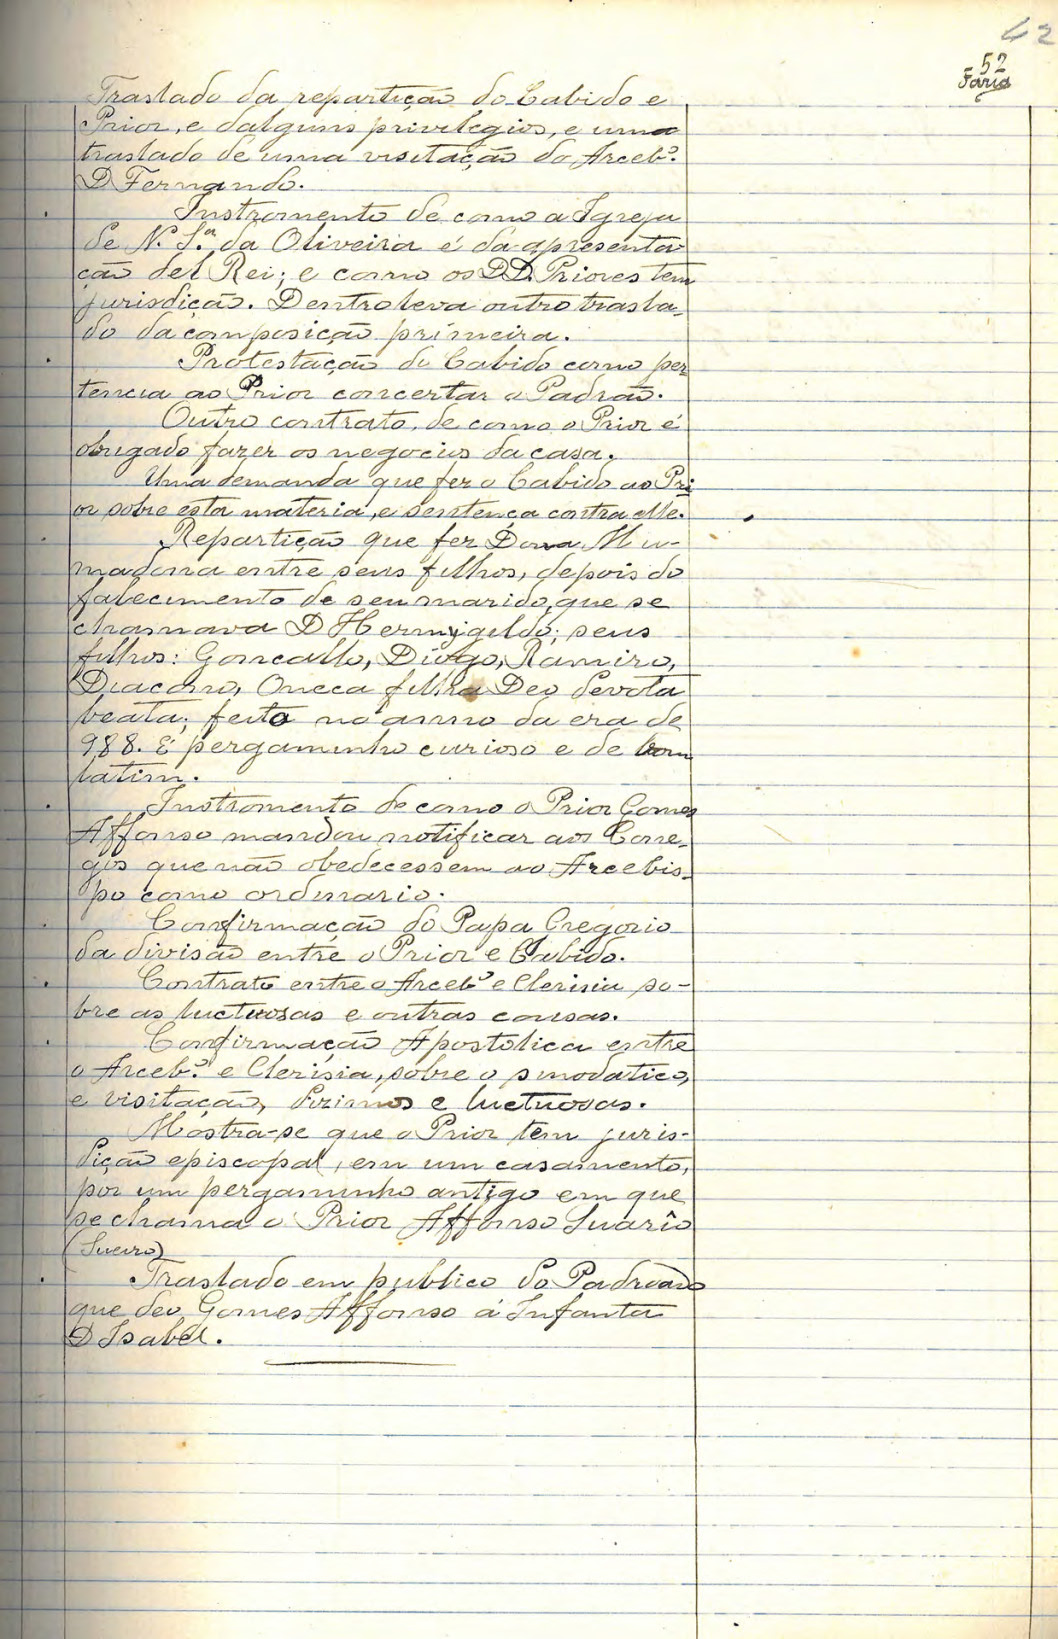 42
52
Faria
Traslado da repartição do Cabido e
Prior, e dalguns privilegios, e uma
traslado de uma visitação do Arcebº.
D Fernando.
Instromento de como a Igreja
de N. S.ª da Oliveira é da apresenta-
ção del Rei; e como os DD. Priores tem
jurisdição. Dentro leva outro trasla-
do da composição primeira.
Protestação do Cabido como per
tencia ao Prior concertar o Padrão.
Outro contrato, de como o Prior é
obrigado fazer os negocios da casa.
Uma demanda que fez o Cabido ao Pri
or sobre esta materia, e sentença contra elle.
Repartição que fez Dona Mu-
madona entre seus filhos, depois do
falecimento de seu marido, que se
chamava D Hermigildo; seus
filhos: Goncallo, Diogo, Ramiro,
Diacono, Oneca filha Deo devota
beata; feito no anno da era de
988. É pergaminho curioso e de bom
latim.
Instromento de como o Prior Gomes
Affonso mandou notificar aos Cone-
gos que não obedecessem ao Arcebis-
po como ordinario.
Confirmação do Papa Gregorio
da divisão entre o Prior e Cabido.
Contrato entre o Arcebº e Clerisia so-
bre as luctuosas e outras cousas.
Confirmação Apostolica entre
o Arcebº. e Clerisia, sobre o sinodatico,
e visitação, dizimos e luctuosas.
Mostra-se que o Prior tem juris-
dição episcopal, em um casamento,
por um pergaminho antigo em que
se chama o Prior Affonso Suariò
(Sueiro)
Traslado em publico do Padroado
que deu Gomes Affonso á Infanta
D Isabel.